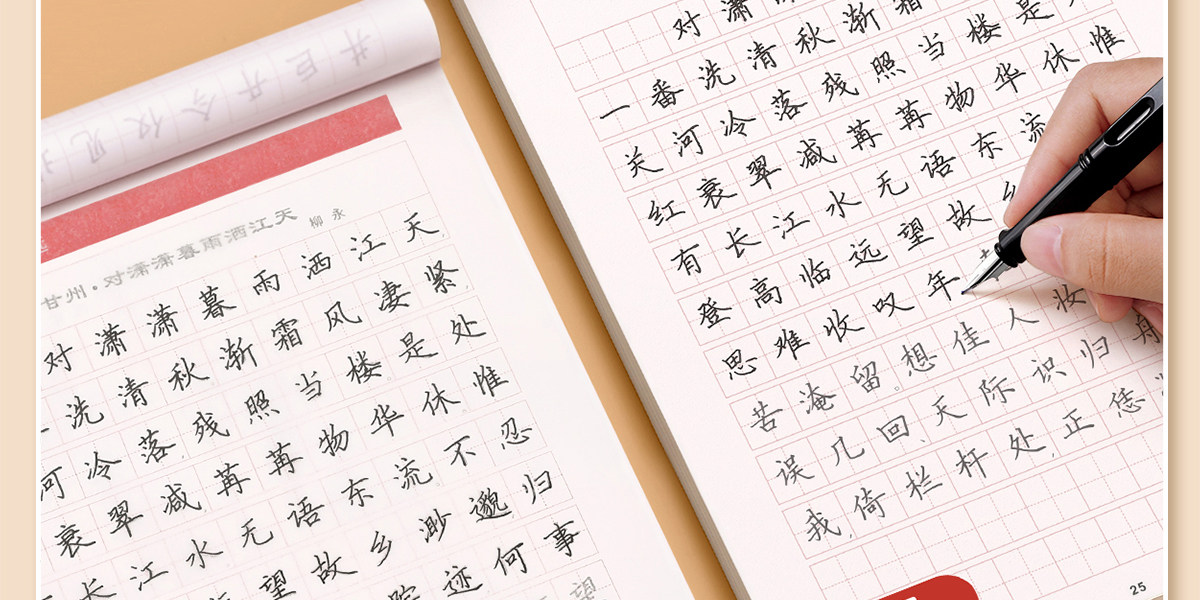 甘州·对潇潇暮雨洒江天
柳永
对潇潇暮雨洒江天
洗清秋渐霜风凄紧,
河冷落,残照当楼是处
衰翠减苒苒物华休惟
长江水无语东流不忍
望故乡渺邈,归
踪迹何事
望
对潇
一番洗清秋渐霜
关河冷落残照当楼是
红衰翠减苒苒物华休惟
有长江水无语东流
登高临远望故乡
思难收叹年
苦淹留想佳人妆
误几回、天际识归舟
我,倚栏杆处,正恁
25